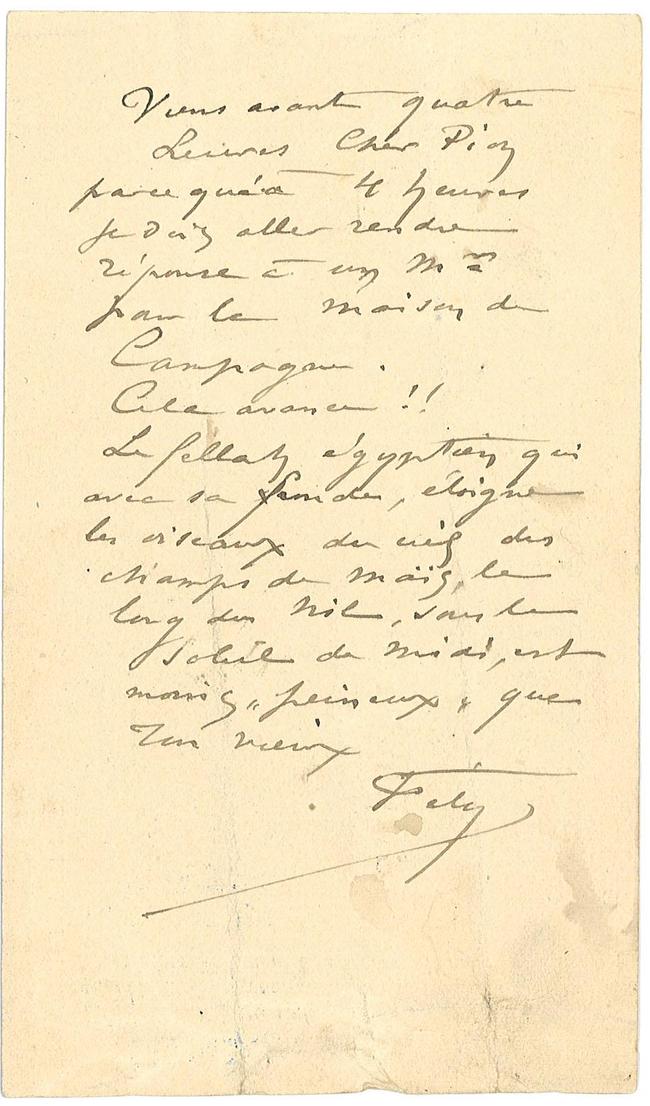 Viens avant quatre
heures Cher Pioz
parcequ'à 4 heures
je dois aller rendre
réponse à un Mr
pour la maison de
Campagne.
Cela avance !!
Le fellah égyptien qui
avec sa fronde, éloigne
les oiseaux du ciel des
champs de maïs, le
long du Nil, sous le
Soleil de Midi, est
moins „peineux„ que
Ton vieux
Fély